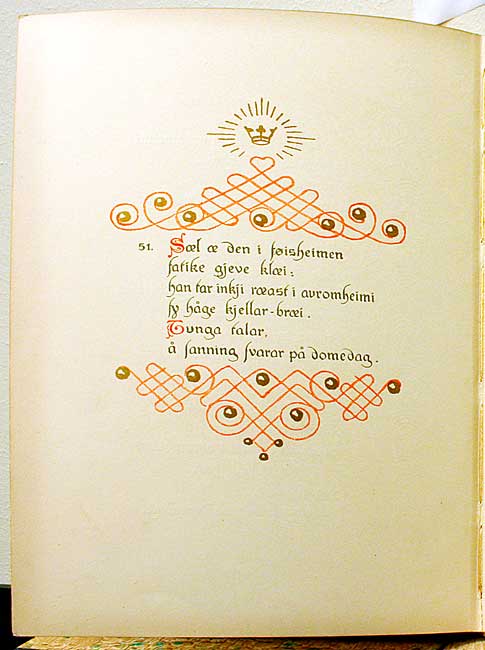 51. Sæl æ den i føisheimen
fatike gjeve klæi:
han tar inkji ræast i avromheimi
fy håge kjellar-bræi.
Tunga talar,
å sanning svarar på domedag.